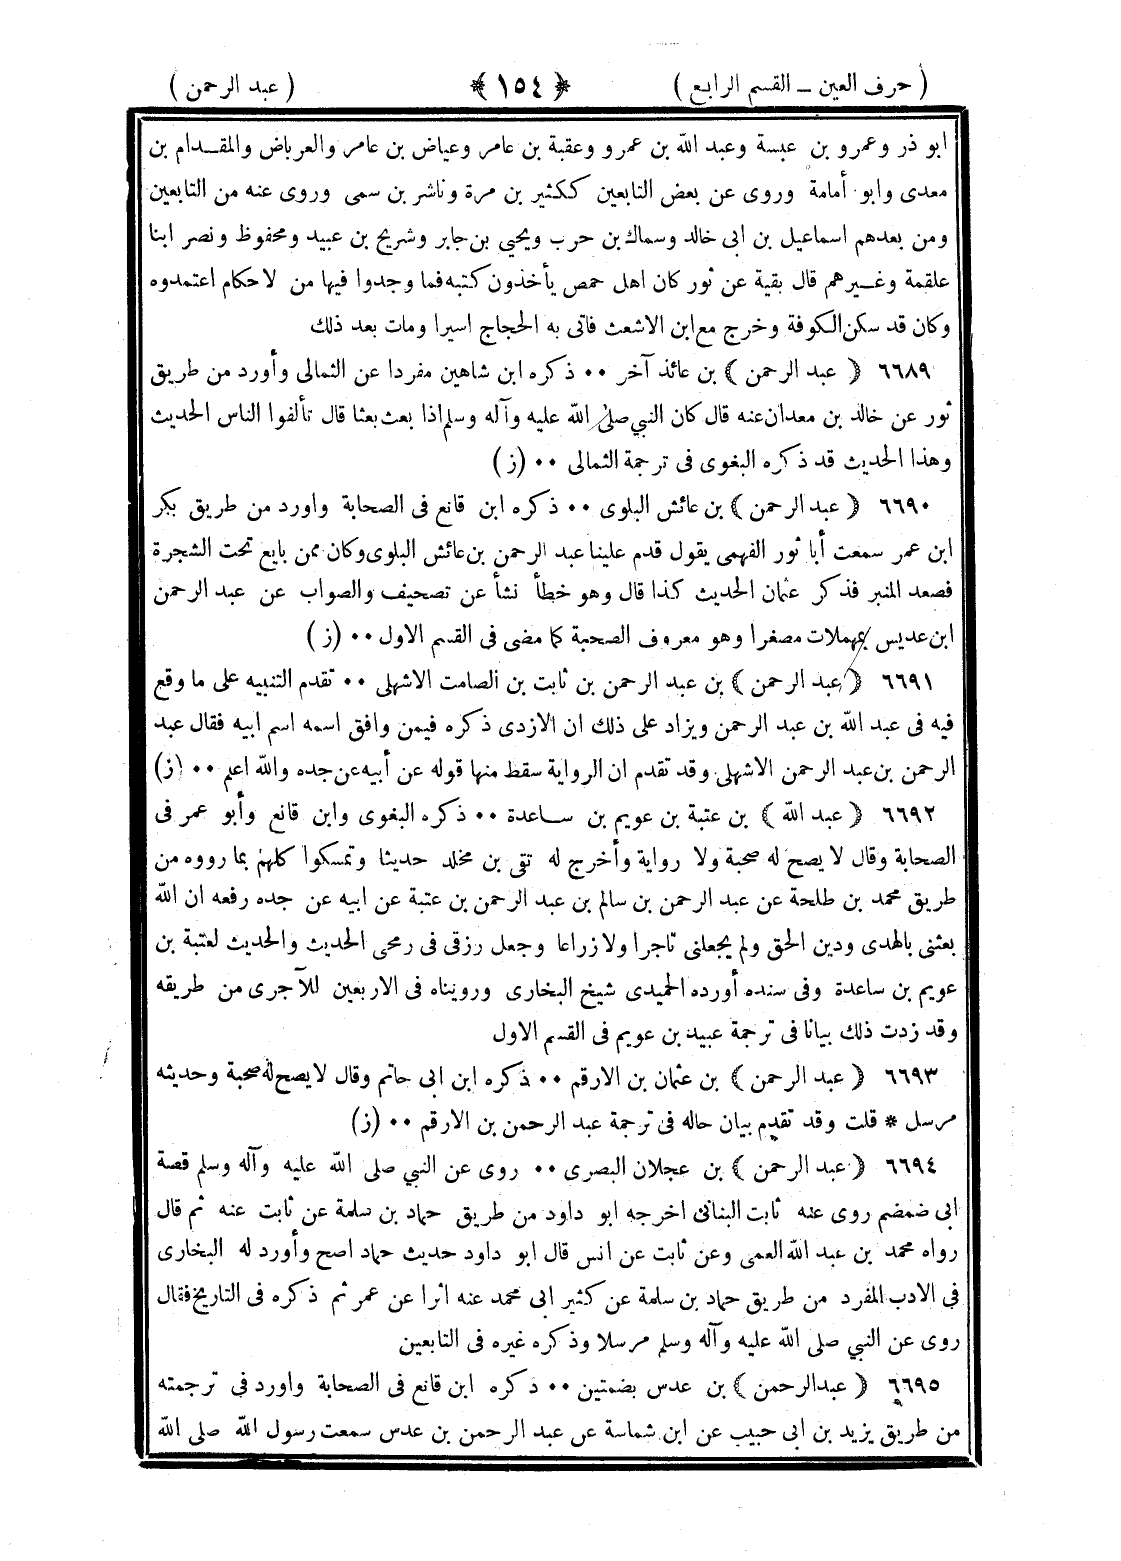 ( حرف العين ــ القسم الرابع ) ﴿ ١٥٤ ﴾ ( عبد الرحمن )
ابو ذر وعمرو بن عبسة وعبد الله بن عمرو وعقبة بن عامر وعياض بن عامر والعرباض والمقدام بن
معدى وابو أمامة وروى عن بعض التابعين ككثير بن مرة وناشر بن سمى وروى عنه من التابعين
ومن بعدهم اسماعيل بن ابى خالد وسماك بن حرب ويحيي بن جابر وشريح بن عبيد ومحفوظ ونصر ابنا
علقمة وغيرهم قال بقية عن ثور كان اهل حمص يأخذون كتبه فما وجدوا فيها من لاحكام اعتمدوه
وكان قد سكن الكوفة وخرج مع ابن الاشعث فاتى به الحجاج اسيرا ومات بعد ذلك
٦٦٨٩ ﴿ عبد الرحمن ﴾ بن عائذ آخر ٠٠ ذكره ابن شاهين مفردا عن الثمالى وأورد من طريق
ثور عن خالد بن معدان عنه قال كان النبي صلى الله عليه وآله وسلم اذا بعث بعثا قال تألفوا الناس الحديث
وهذا الحديث قد ذكره البغوى فى ترجمة الثمالى ٠٠ (ز)
٦٦٩٠ ﴿ عبد الرحمن ﴾ بن عائش البلوى ٠٠ ذكره ابن قانع فى الصحابة واورد من طريق بكر
ابن عمر سمعت أبا ثور الفهمى يقول قدم علينا عبد الرحمن بن عائش البلوى وكان ممن بايع تحت الشجرة
فصعد المنبر فذكر عثمان الحديث كذا قال وهو خطأ نشأ عن تصحيف والصواب عن عبد الرحمن
ابن عديس بمهملات مصغرا وهو معروف الصحبة كما مضى فى القسم الاول ٠٠ (ز)
٦٦٩١ ﴿ عبد الرحمن ﴾ بن عبد الرحمن بن ثابت بن الصامت الاشهلى ٠٠ تقدم التنبيه على ما وقع
فيه فى عبد الله بن عبد الرحمن ويزاد على ذلك ان الازدى ذكره فيمن وافق اسمه اسم ابيه فقال عبد
الرحمن بن عبد الرحمن الاشهلى وقد تقدم ان الرواية سقط منها قوله عن أبيه عن جده والله اعلم ٠٠ (ز)
٦٦٩٢ ﴿ عبد الله ﴾ بن عتبة بن عويم بن ساعدة ٠٠ ذكره البغوى وابن قانع وأبو عمر فى
الصحابة وقال لا يصح له صحبة ولا رواية وأخرج له تقى بن مخلد حديثا وتمسكوا كلهم بما رووه من
طريق محمد بن طلحة عن عبد الرحمن بن سالم بن عبد الرحمن بن عتبة عن ابيه عن جده رفعه ان الله
بعثنى بالهدى ودين الحق ولم يجعلنى تاجرا ولا زراعا وجعل رزقى فى رمحى الحديث والحديث لعتبة بن
عويم بن ساعدة وفى سنده أورده الحميدى شيخ البخارى ورويناه فى الاربعين للآجرى من طريقه
وقد زدت ذلك بيانا فى ترجمة عبيد بن عويم فى القسم الاول
٦٦٩٣ ﴿ عبد الرحمن ﴾ بن عثمان بن الارقم ٠٠ ذكره ابن ابى حاتم وقال لا يصح له صحبة وحديثه
مرسل * قلت وقد تقدم بيان حاله فى ترجمة عبد الرحمن بن الارقم ٠٠ (ز)
٦٦٩٤ ﴿ عبد الرحمن ﴾ بن عجلان البصرى ٠٠ روى عن النبي صلى الله عليه وآله وسلم قصة
ابى ضمضم روى عنه ثابت البنانى اخرجه ابو داود من طريق حماد بن سلمة عن ثابت عنه ثم قال
رواه محمد بن عبد الله العمى وعن ثابت عن انس قال ابو داود حديث حماد اصح وأورد له البخارى
فى الادب المفرد من طريق حماد بن سلمة عن كثير ابى محمد عنه اثرا عن عمر ثم ذكره فى التاريخ فقال
روى عن النبي صلى الله عليه وآله وسلم مرسلا وذكره غيره فى التابعين
٦٦٩٥ ﴿ عبد الرحمن ﴾ بن عدس بضمتين ٠٠ ذكره ابن قانع فى الصحابة واورد فى ترجمته
من طريق يزيد بن ابى حبيب عن ابن شماسة عن عبد الرحمن بن عدس سمعت رسول الله صلى الله